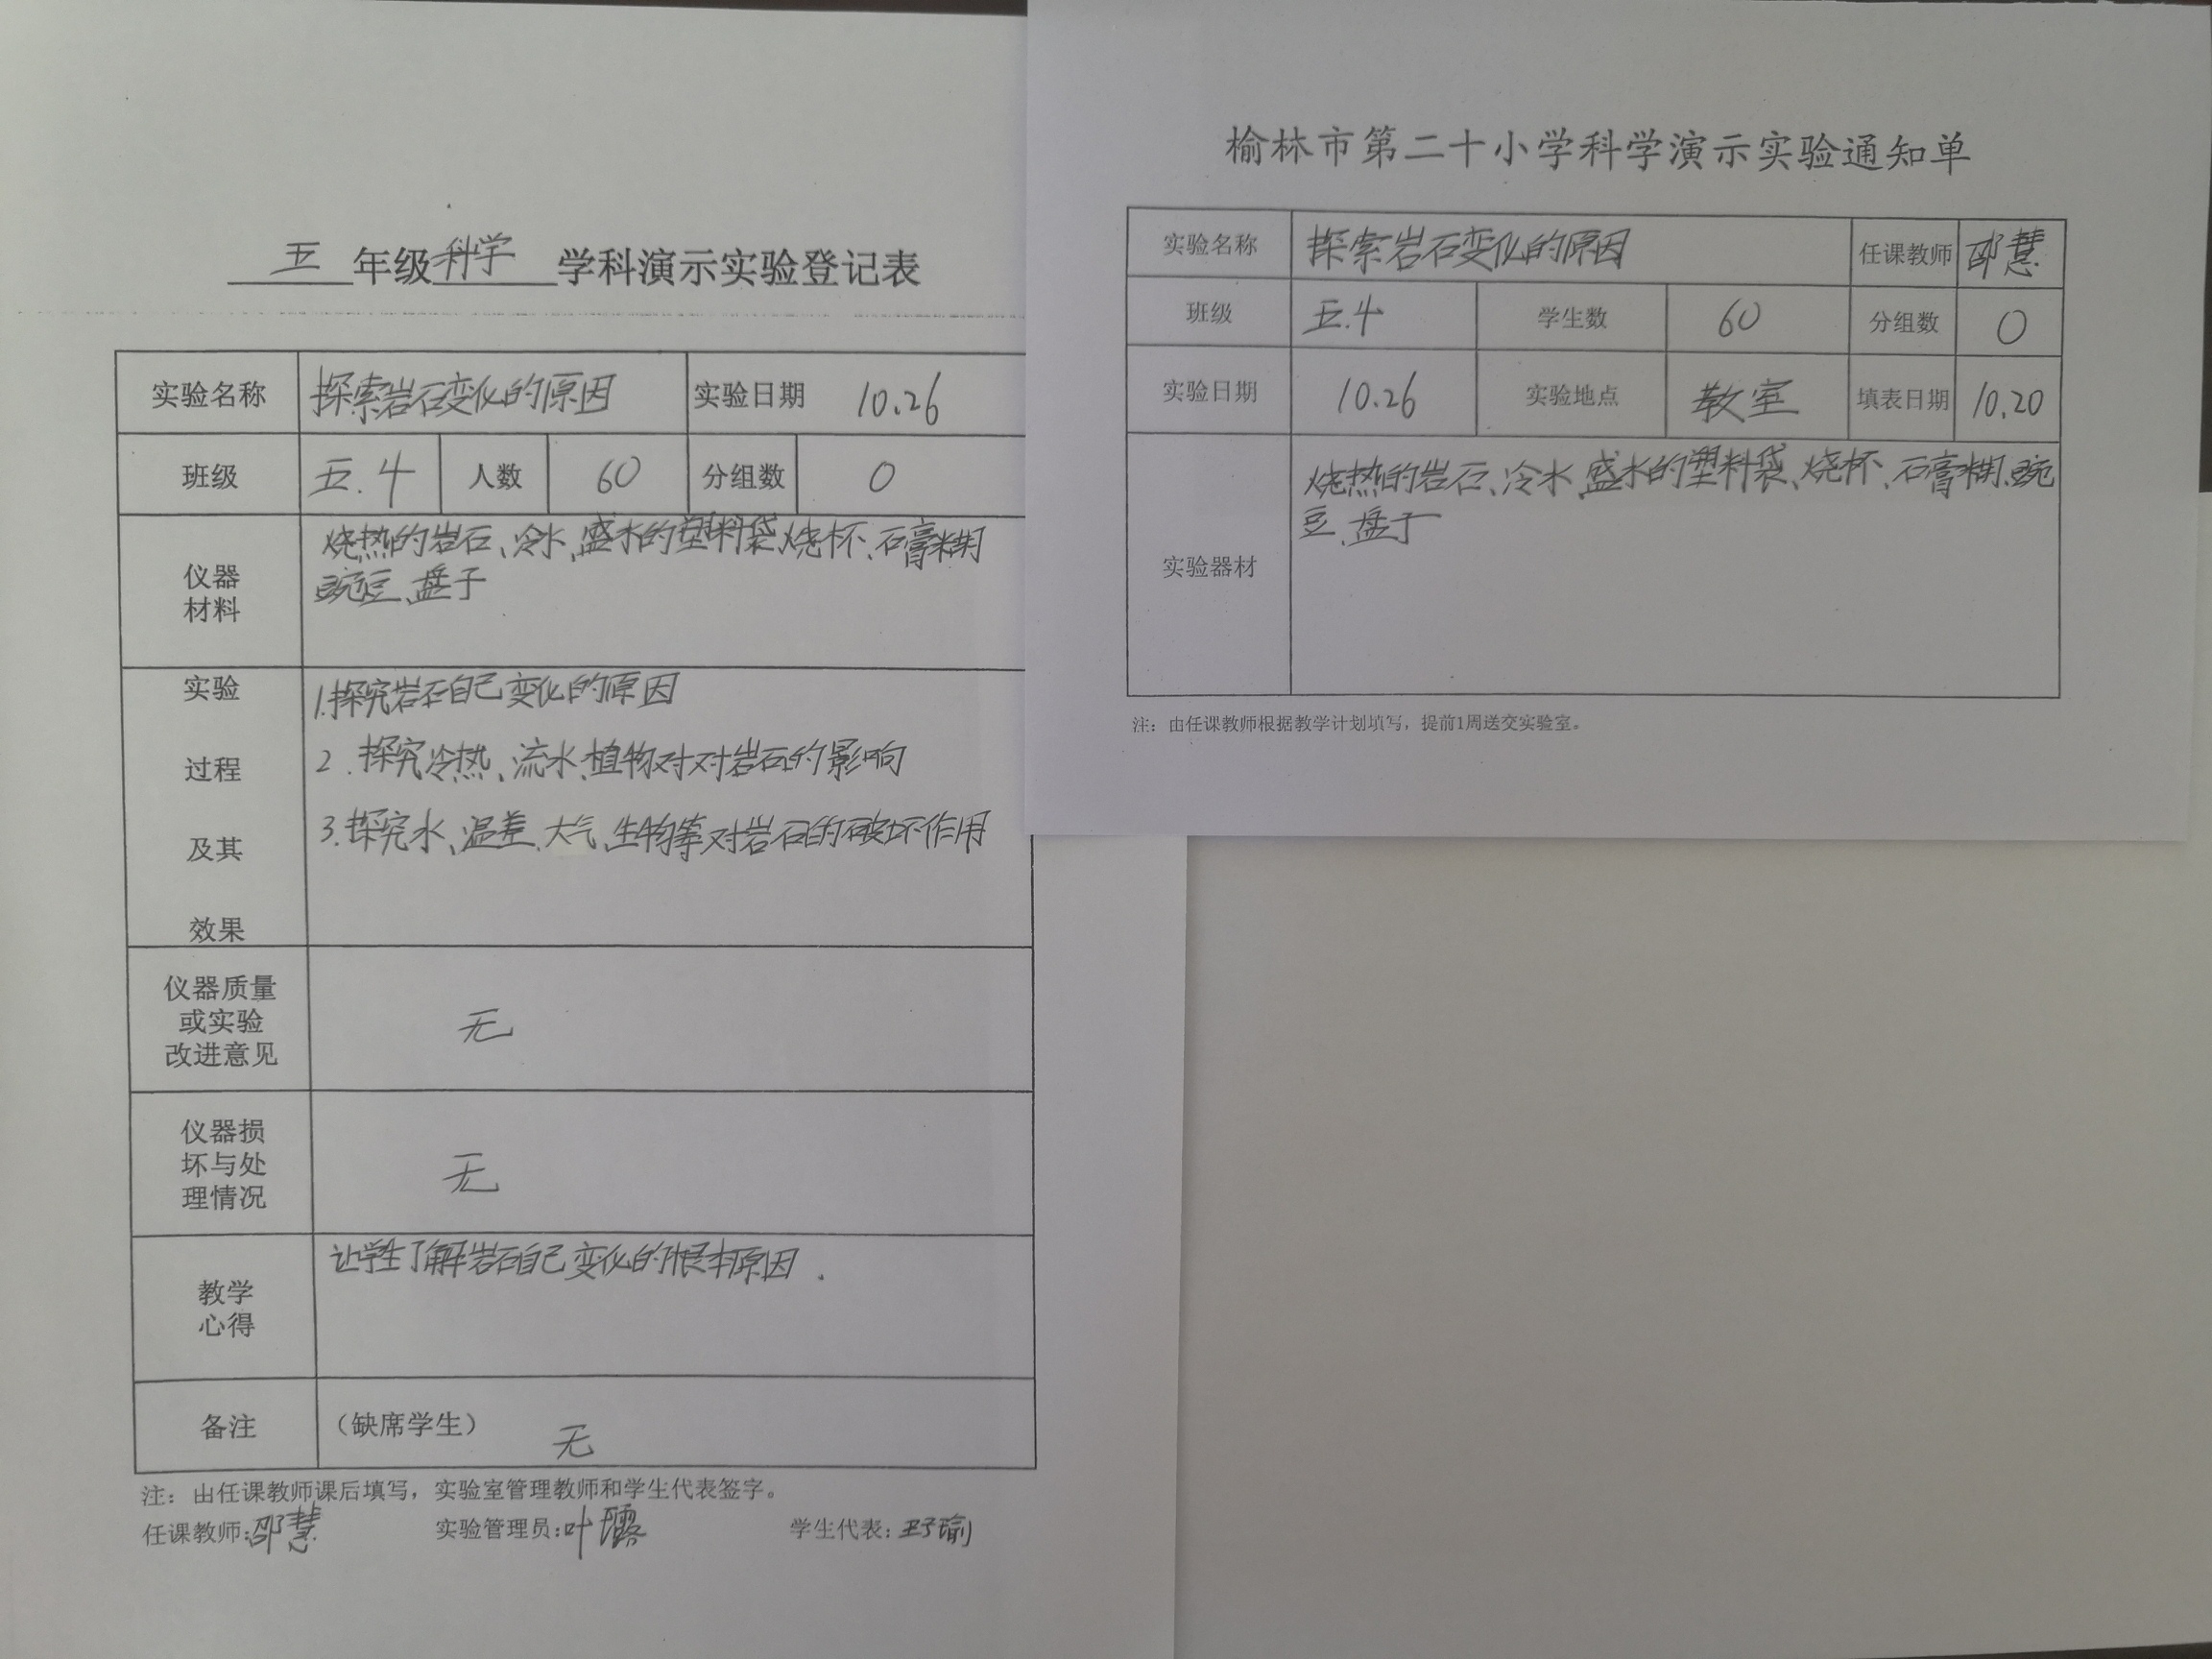 五年级科学学科演示实验登记表
实验名称 探索岩石变化的原因 实验日期 10.26
班级 五.4 人数 60 分组数 0
仪器
材料
烧热的岩石、冷水、盛水的塑料袋、烧杯、石膏糊
豌豆、盘子
实验
过程
及其
效果
1.探究岩石自己变化的原因
2.探究冷热、流水、植物对对岩石的影响
3.探究水、温差、大气、生物等对岩石的破坏作用
仪器质量
或实验
改进意见
无
仪器损
坏与处
理情况
无
教学
心得
让学生了解岩石自己变化的根本原因.
备注 (缺席学生) 无
注：由任课教师课后填写，实验室管理教师和学生代表签字。
任课教师:邵慧 实验管理员:叶 学生代表:
榆林市第二十小学科学演示实验通知单
实验名称 探索岩石变化的原因 任课教师 邵慧
班级 五.4 学生数 60 分组数 0
实验日期 10.26 实验地点 教室 填表日期 10.20
实验器材
烧热的岩石、冷水、盛水的塑料袋、烧杯、石膏糊、豌
豆、盘子
注：由任课教师根据教学计划填写，提前1周送交实验室。